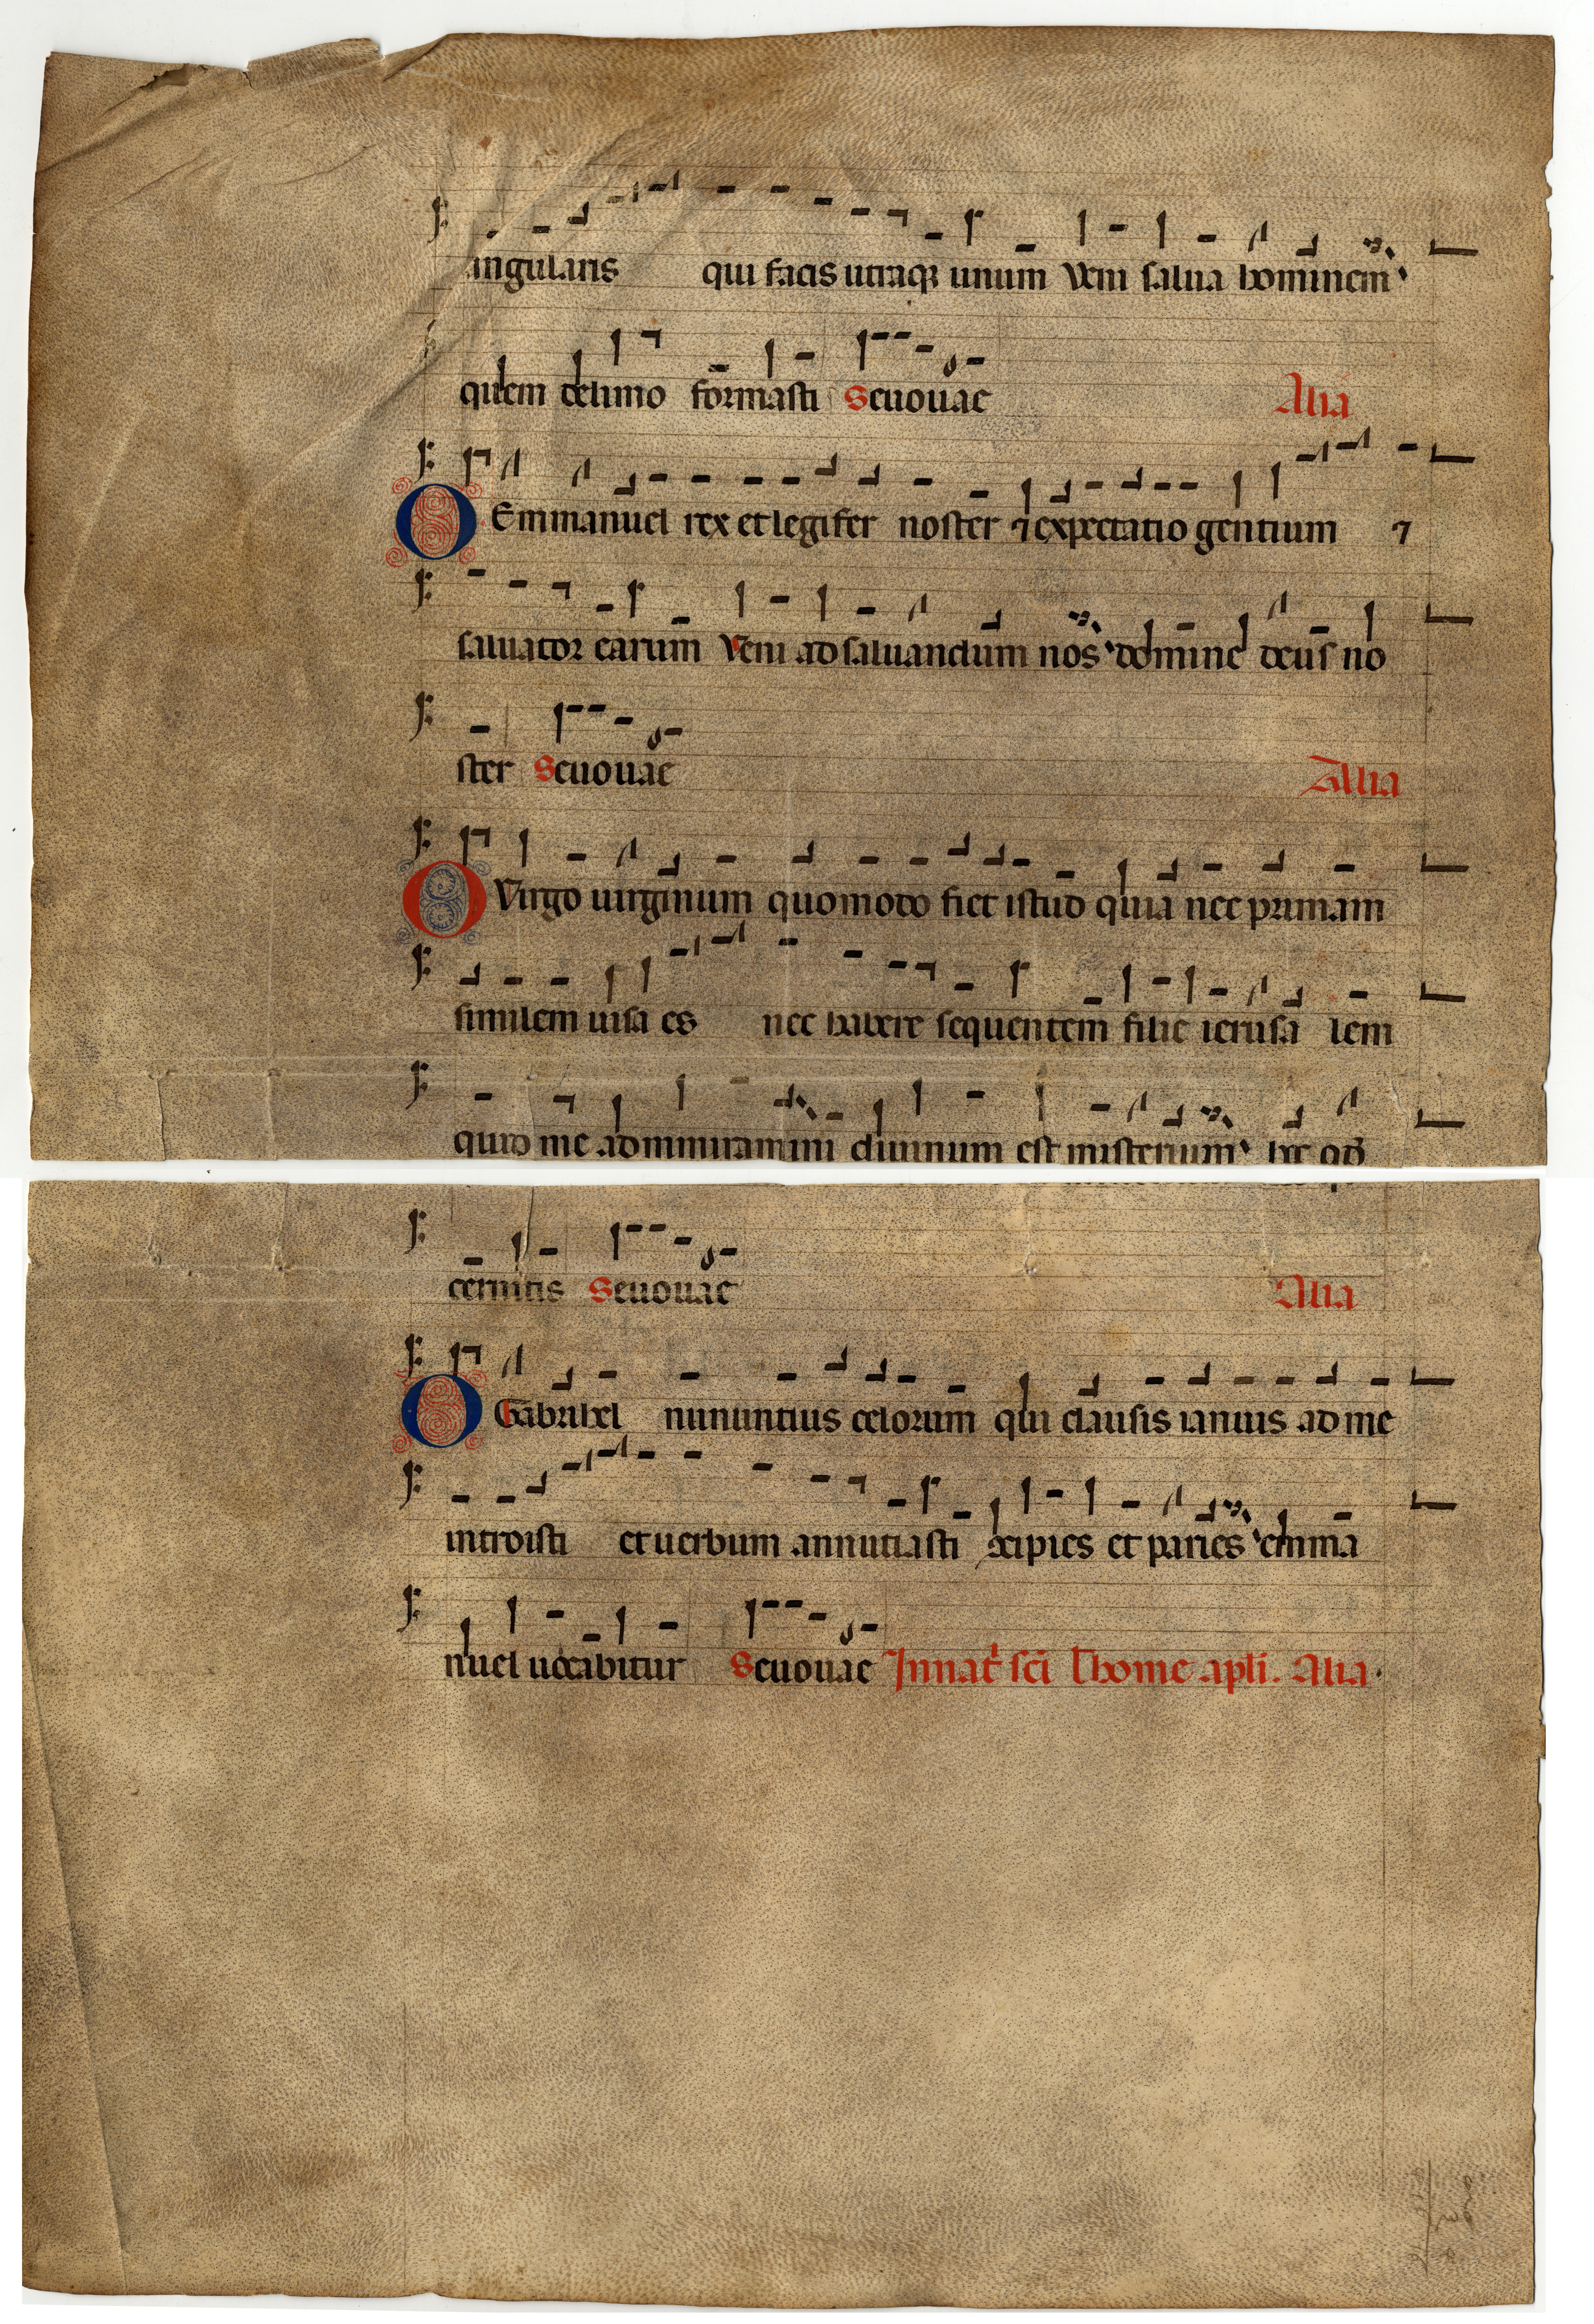 angularis qui facis utraqꝫ unum Veni salua hominem
quem delimo formasti Seuouae Alia
O Emmanuel rex et legifer noster ⁊ expectatio gentium ⁊
saluator earum Veni ad saluandum nos domine deus no
ster Seuouae Alia
O Virgo uirginum quomodo fiet istud quia nec primam
similem uisa es nec habere sequentem filie ierusa lem
quid me admiramini diuinum est misterium hc qđ
cernitis Seuouae Alia
O Gabrihel nununtius celorum qui clausis ianuis ad me
introisti et uerbum annutiasti ↄcipies et paries emma
nuel uocabitur Seuouae In nat̄ sc̄i thome apl̄i. Alia.